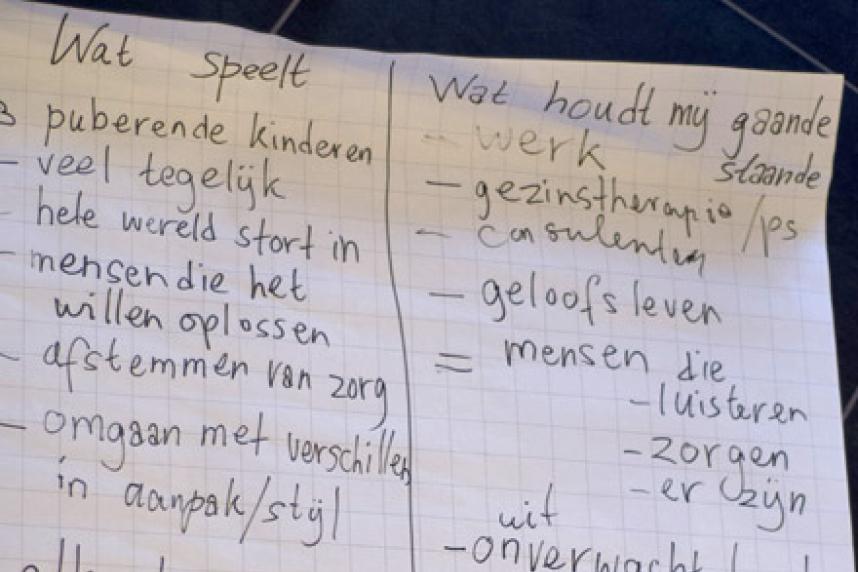 Wat speelt
3 puberende kinderen
- veel tegelijk
- hele wereld stort in
- mensen die het
willen oplossen
- afstemmen van zorg
- omgaan met verschillen
in aanpak/stijl
Wat houdt mij gaande
staande
- werk
- gezinstherapie/ps
- consulenten
- geloofsleven
= mensen die
- luisteren
- zorgen
- er zijn
uit
- onverwacht